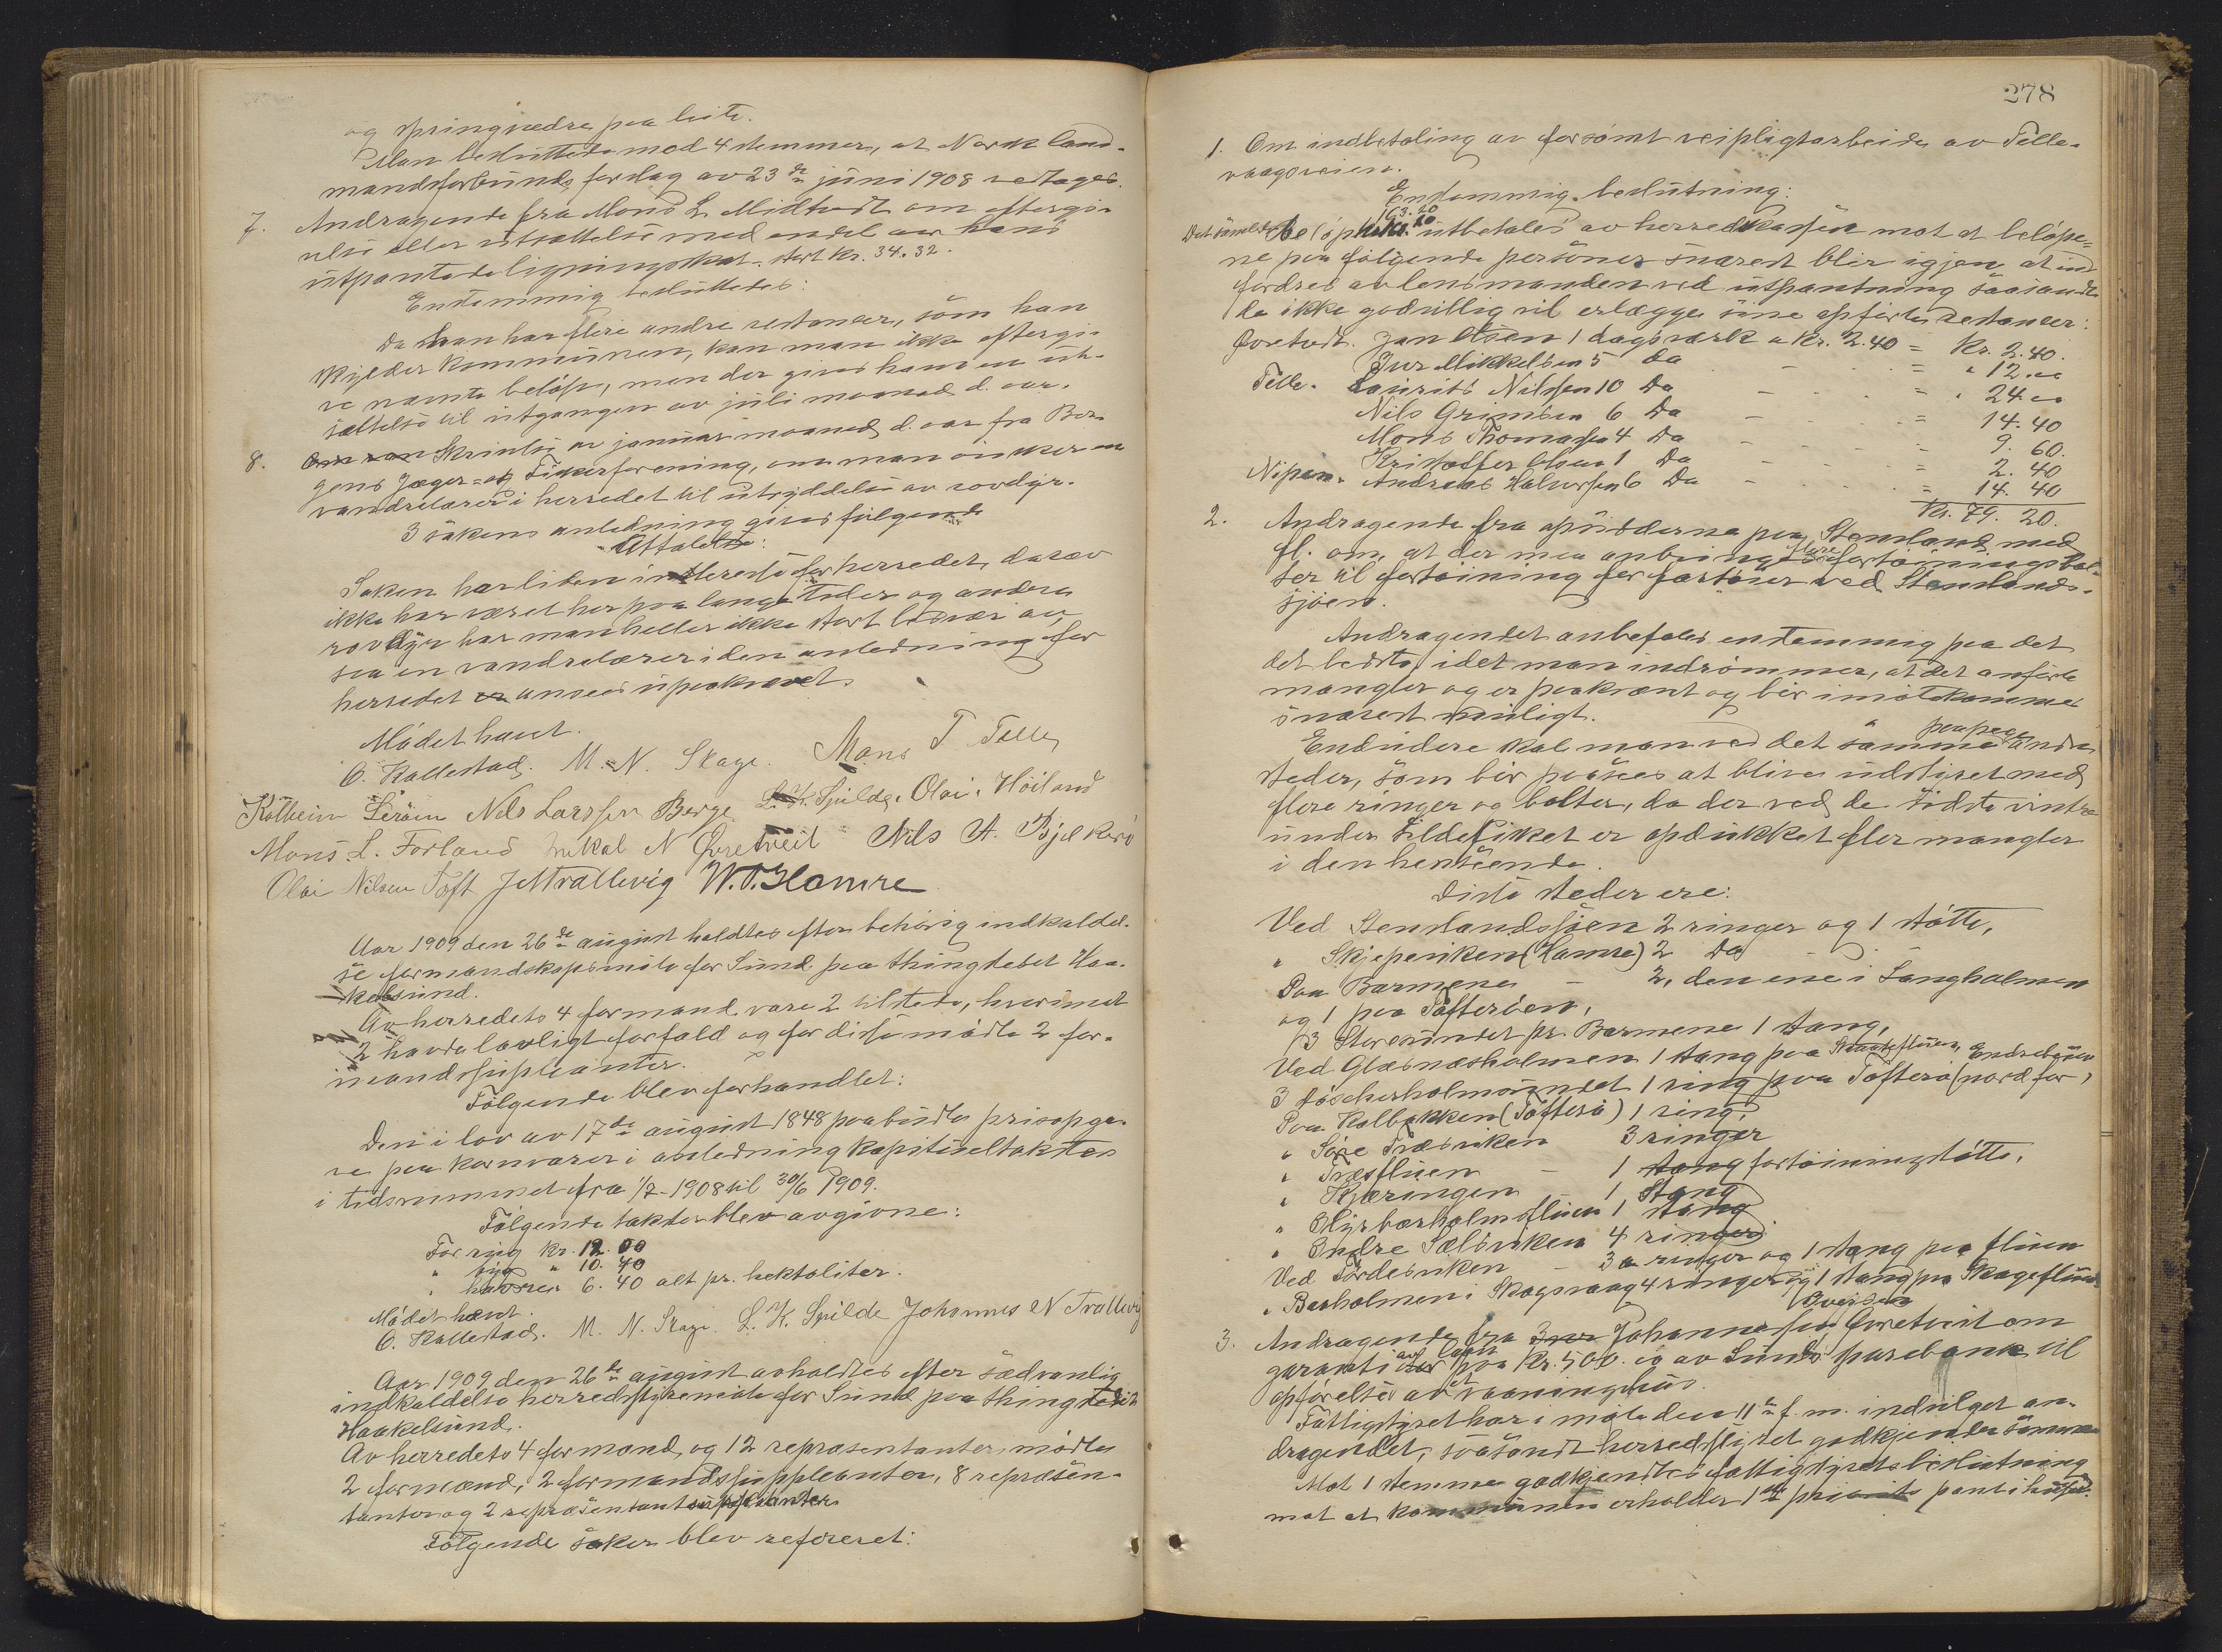 og springvædre paa beite.
Man besluttede med 4 stemmer, at Norsk Land-
mandsforbunds forslag av 23de juni 1908 vedtages.
7. Andragende fra Mons L. Midtvedt om eftergi-
velse eller utsættelse med endel av hans
utpantede ligningsskat, stort kr. 34.32.
Enstemmig besluttedes:
Da han har flere andre restancer, som han
skylder kommunen, kan man ikke eftergi-
ve nævnte beløp, men der gives ham en ut-
sættelse til utgangen av juli maaned d. aar.
8. Skrivelse av januar maaned d. aar fra Ber-
gens Jæger- og Fiskerforening, om man ønsker en
vandrelærer i herredet til utryddelse av rovdyr.
I sakens anledning gives følgende
Uttalelse:
Saken har liden interesse for herredet, da ræv
ikke har været her paa lange tider og andre
rovdyr har man heller ikke stort besvær av,
saa en vandrelærer i den anledning for
herredet er ansees upaakrævet.
Mødet hævet.
O. Kallestad. M. N. Skage. Mons T Telle
Kolbein Lerøen Nils Larssen Berge L. K. Spilde. Olai. Høiland
Mons. L. Forland Mikal N Governtveit Nils A. Bjelkarø
Olai Nilsen Toft J N Trællevig W. T. Hamre
Aar 1909 den 26de august holdtes efter behørig indkaldel-
se formandskapsmøte for Sund paa thingstedet Haa-
kelsund.
Av herredets 4 formænd vare 2 tilstede, hvorimot
2 havde lovligt forfald og for disse mødte 2 for-
mandssuppleanter.
Følgende blev forhandlet:
Den i lov av 17de august 1848 paabudte prisopga-
ve paa kornvarer i anledning kapitelstaksten
i tidsrummet fra 1/7-1908 til 30/6 1909.
Følgende takster blev avgivne:
For rug kr. 12.00
" byg " 10.40
" havre " 6.40 alt pr. hektoliter.
Mødet hævet.
O. Kallestad. M. N. Skage. L. K. Spilde Johannes N Trællevig
Aar 1909 den 26de august avholdtes efter sædvanlig
indkaldelse herredsstyremøte for Sund paa thingstedet
Haakelsund.
Av herredets 4 formænd og 12 repræsentanter mødte
2 formænd, 2 formandssuppleanter, 8 repræsen-
tanter og 2 repræsentantsuppleanter.
Følgende saker blev refereret:
278
1. Om indbetaling av forsømt veipligtarbeide av Telle-
vaagveien.
Enstemmig beslutning:
163.20
Det samlede beløp utbetales av herredskassen mot at beløpe-
ne paa følgende personer snarest blir igjen at ind-
fordres av lensmanden ved utpantning saasandt
de ikke godvillig vil erlægge sine opførte restancer:
Governtveit. Jan Olsen 1 dagsværk a kr. 2.40 = Kr. 2.40.
Iver Mikkelsen 5 Do - = " 12.00
Telle. Laurits Nilssen 10 Do - = " 24.00
Nils Grimsen 6 Do - = 14.40
Mons Thomassen 4 Do - 9.60.
Kristoffer Olsen 1 Do - = 2.40
Nipen. Andreas Halvorsen 6 Do - = 14.40
Kr. 79.20.
2. Andragende fra opsidderne paa Stensland med
fl. om, at der maa anbringes flere fortøiningsbol-
ter til fortøining for fartøier ved Stenslands-
sjøen.
Andragendet anbefales enstemmig paa det
det bedste, idet man indrømmer, at det anførte
mangler og er paakrævet og bør imøtekommes
snarest muligt.
Endvidere skal man ved det samme paapege andre
steder, som bør paasees at blive udstyret med
flere ringer og bolter, da der ved de sidste vintre
under sildefisket er opdukket fler mangler
i den henseende.
Disse steder ere:
Ved Stenslandssjøen 2 ringer og 1 støtte,
" Skjepeviken (Hamre) 2 Do -
Paa Barmene - 2, den ene i Langholmen
og 1 paa Tofterøen,
I Storesundet pr. Barmene 1 stang,
Ved Glæsnæsholmen 1 stang paa
I 1 ring paa Tofterø (nord for )
Paa Kolbakken (Tofterø) 1 ring,
" Søre Træsviken 3 ringer
" Træsfluen - 1 stang fortøiningsstøtte,
" Kjæringen 1 Stang
" 1 stang
" Indre Sælsviken 4 ringer
Ved Førdesviken - 3 ringer og 1 stang paa fluen
" Barholmen i Skogsvaag 4 ringer og 1 stang paa Skagefluen
3. Andragende fra Johannessen Governtveit om
garanti av laan paa Kr. 500. av Sunds sparebank til
opførelse av et vaaningshus.
Fattigstyret har i møte den 11te f. m. indvilget an-
dragendet, saasandt herredsstyret godkjender samme
Mot 1 stemme godkjendtes fattigstyrets beslutning
mot at kommunen erholder 1ste prioritets pant i huset.